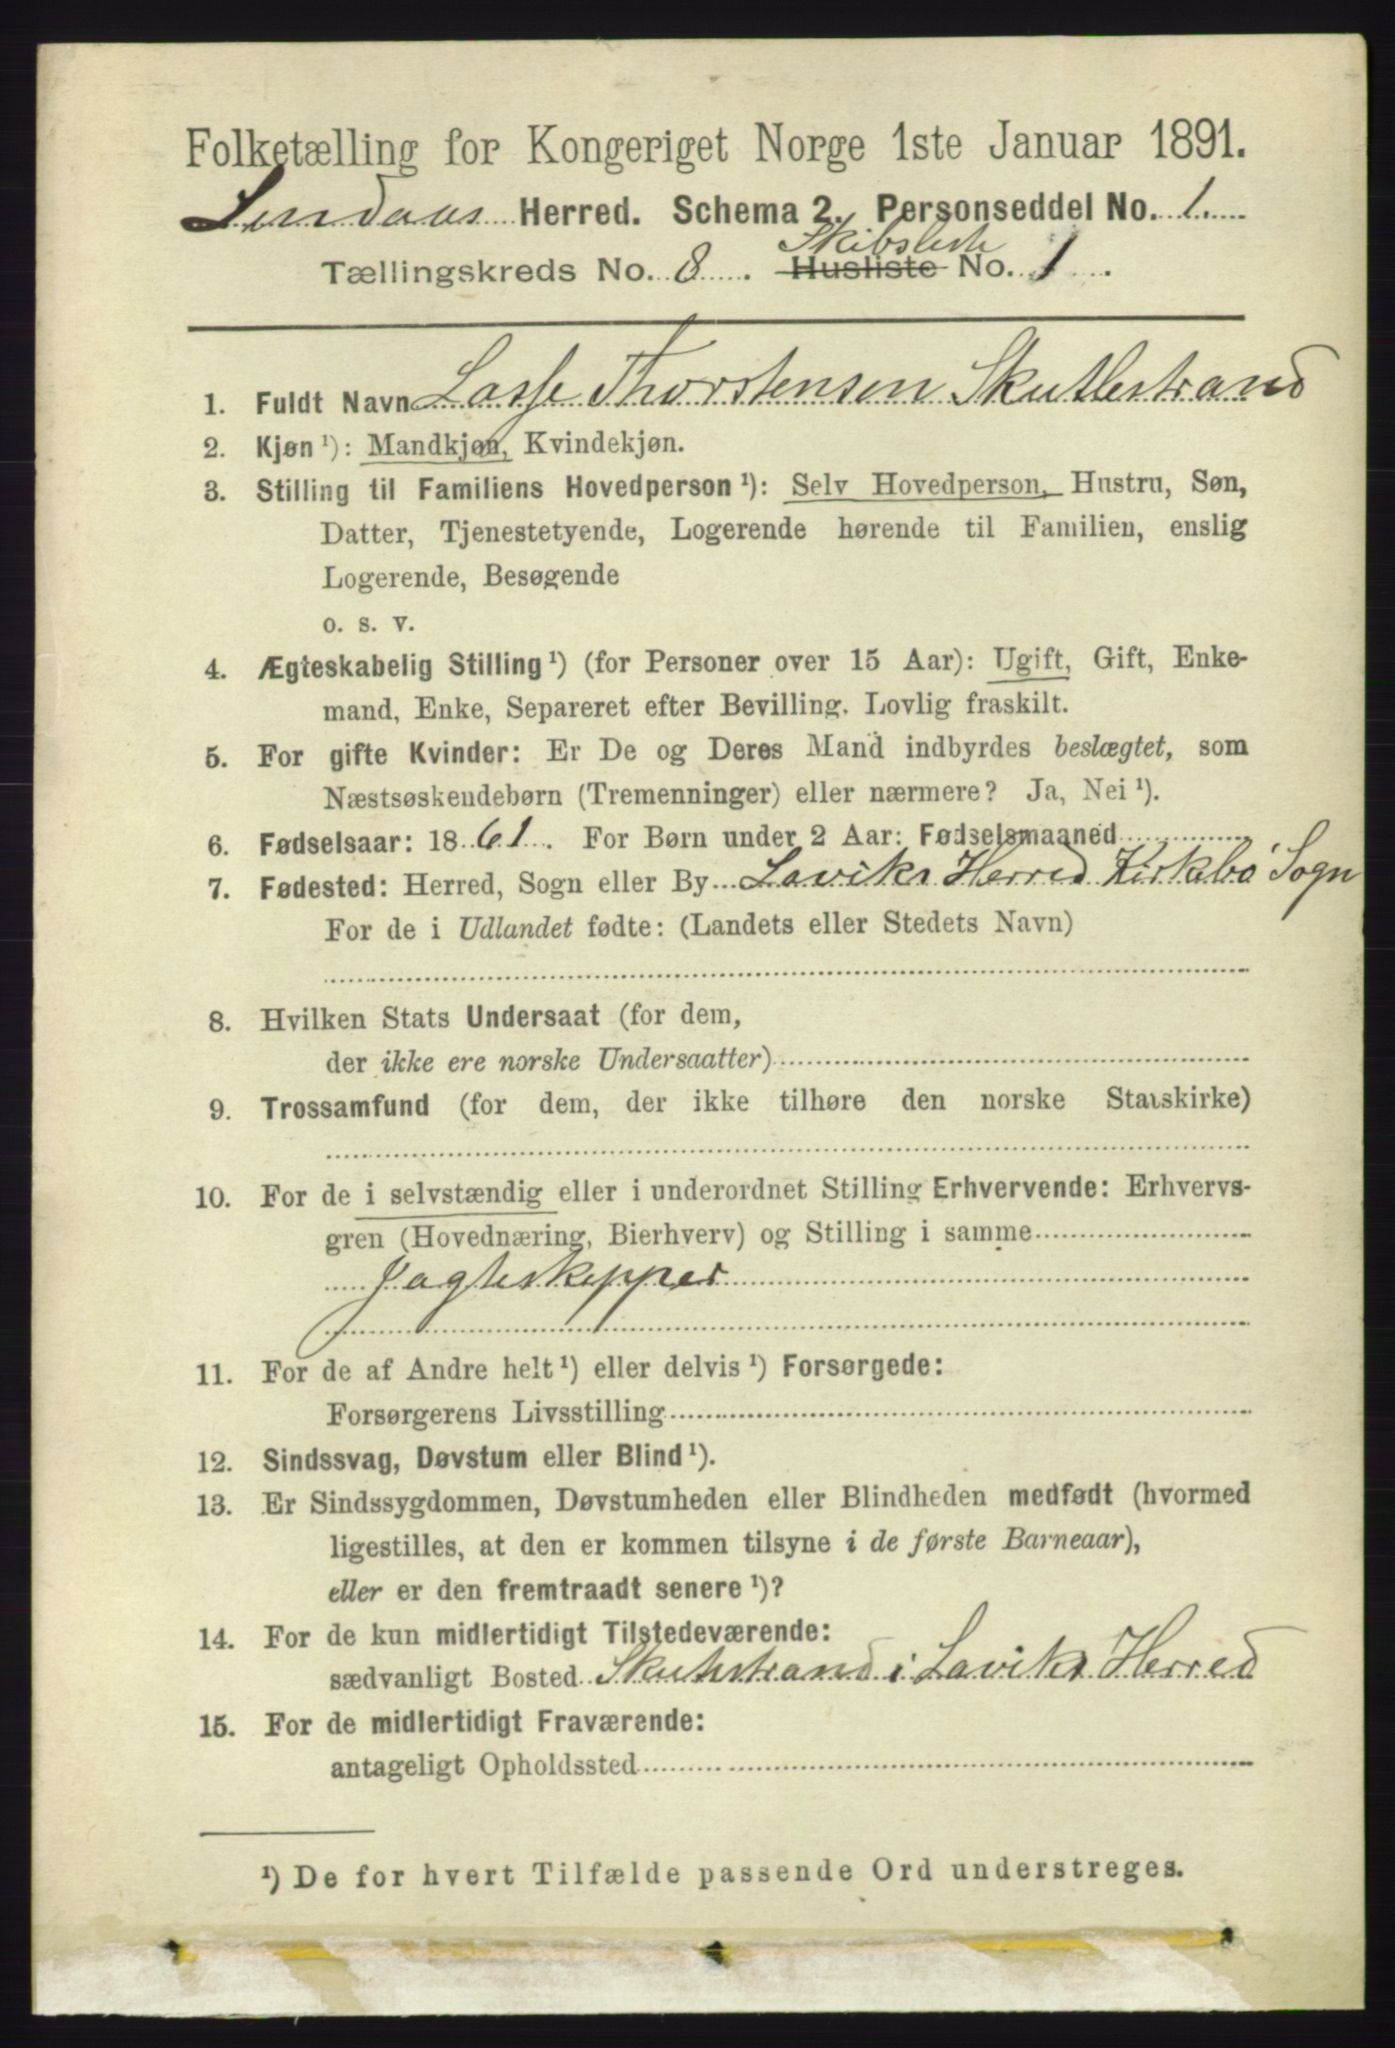 Folketælling for Kongeriget Norge 1ste Januar 1891.
Lindaas Herred. Schema 2. Personseddel No. 1.
Skibsliste
Tællingskreds No. 8. Husliste No. 1.
1. Fuldt Navn Lasse Thorstensen Skutlestrand
2. Kjøn ¹): Mandkjøn, Kvindekjøn.
3. Stilling til Familiens Hovedperson ¹): Selv Hovedperson, Hustru, Søn,
Datter, Tjenestetyende, Logerende hørende til Familien, enslig
Logerende, Besøgende
o. s. v.
4. Ægteskabelig Stilling ¹) (for Personer over 15 Aar): Ugift, Gift, Enke-
mand, Enke, Separeret efter Bevilling. Lovlig fraskilt.
5. For gifte Kvinder: Er De og Deres Mand indbyrdes beslægtet, som
Næstsøskendebørn (Tremenninger) eller nærmere? Ja, Nei ¹).
6. Fødselsaar: 1861. For Børn under 2 Aar: Fødselsmaaned
7. Fødested: Herred, Sogn eller By Laviks Herred Kirkebø Sogn
For de i Udlandet fødte: (Landets eller Stedets Navn)
8. Hvilken Stats Undersaat (for dem,
der ikke ere norske Undersaatter)
9. Trossamfund (for dem, der ikke tilhøre den norske Statskirke)
10. For de i selvstændig eller i underordnet Stilling Erhvervende: Erhvervs-
gren (Hovednæring, Bierhverv) og Stilling i samme
Jagteskipper
11. For de af Andre helt ¹) eller delvis ¹) Forsørgede:
Forsørgerens Livsstilling
12. Sindssvag, Døvstum eller Blind ¹).
13. Er Sindssygdommen, Døvstumheden eller Blindheden medfødt (hvormed
ligestilles, at den er kommen tilsyne i de første Barneaar),
eller er den fremtraadt senere ¹)?
14. For de kun midlertidigt Tilstedeværende:
sædvanligt Bosted Skutlestrand i Laviks Herred
15. For de midlertidigt Fraværende:
antageligt Opholdssted
¹) De for hvert Tilfælde passende Ord understreges.